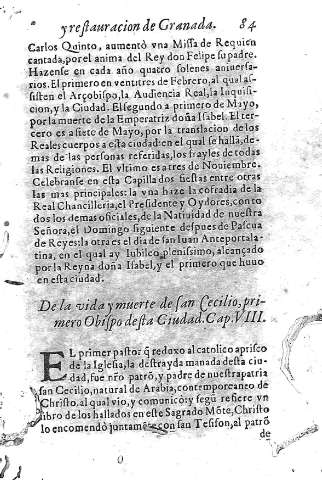 y restauracion de Granada. 84
Carlos Quinto, aumentò vna Missa de Requien
cantada, por el anima del Rey don Felipe su padre.
Hazense en cada año quatro solenes aniuersa-
rios. El primero en ventitres de Febrero, al qual as-
sisten el Arçobispo, la Audiencia Real, la Inquisi-
cion, y la Ciudad. El segundo a primero de Mayo,
por la muerte de la Emperatriz doña Isabel. El ter-
cero es a siete de Mayo, por la translacion de los
Reales cuerpos a esta ciudad: en el qual se hallã, de-
mas de las personas referidas, los frayles de todas
las Religiones. El vltimo es a tres de Nouiembre.
Celebranse en esta Capilla dos fiestas entre otras
las mas principales: la vna haze la cofradia de la
Real Chancilleria, el Presidente y Oydores, con to
dos los demas oficiales, de la Natiuidad de nuestra
Señora, el Domingo siguiente despues de Pascua
de Reyes: la otra es el dia de san Iuan Anteportala-
tina, en el qual ay Iubileo plenissimo, alcançado
por la Reyna doña Isabel, y el primero que huuo
en esta ciudad.
De la vida y muerte de san Cecilio, pri-
mero Obispo desta Ciudad. Cap. VIII.
EL primer pastor q̃ reduxo al catolico aprisco
de la Iglesia, la destrayda manada desta ciu
dad, fue nr̃o patrõ, y padre de nuestra patria
san Cecilio, natural de Arabia, contemporaneo de
Christo, al qual vio, y comunicò: y segũ refiere vn
libro de los hallados en este Sagrado Mõte, Christo
lo encomendò juntamẽte con san Tesifon, al patrõ
de